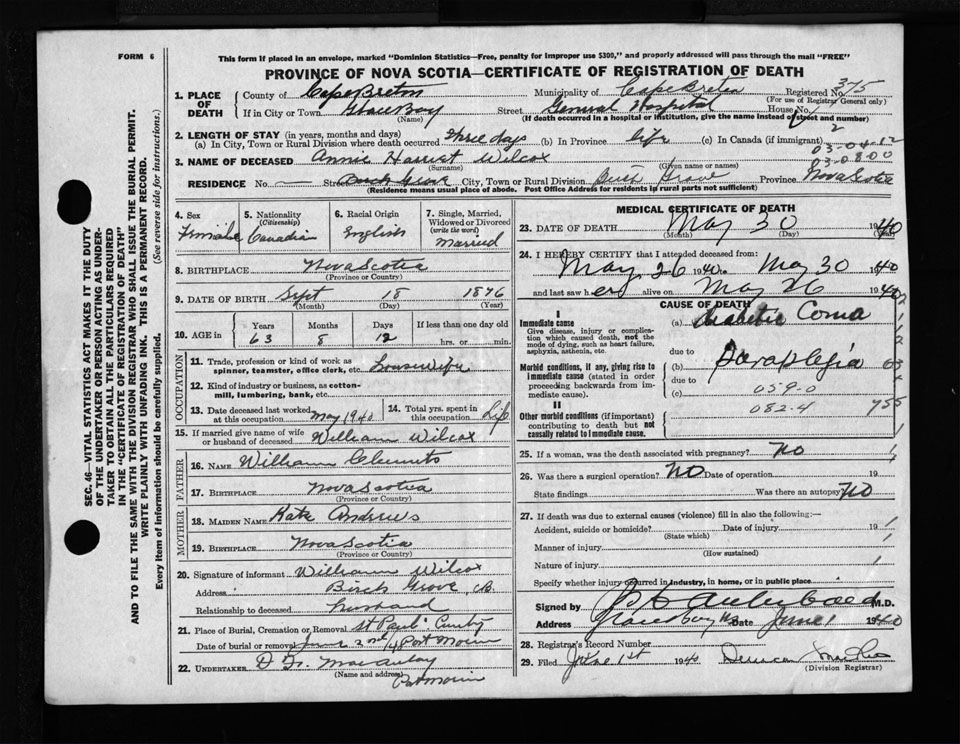 FORM 6
This form if placed in an envelope, marked "Dominion Statistics—Free, penalty for improper use $300," and properly addressed will pass through the mail "FREE"
PROVINCE OF NOVA SCOTIA—CERTIFICATE OF REGISTRATION OF DEATH
1. PLACE OF DEATH County of Cape Breton Municipality of Cape Breton Registered No. 375
(For use of Registrar General only)
If in City or Town Glace Bay Street General Hospital House No.
(Name) (If death occurred in a hospital or institution, give the name instead of street and number)
2. LENGTH OF STAY (in years, months and days)
(a) In City, Town or Rural Division where death occurred three days (b) In Province life (c) In Canada (if immigrant) 2
03-04-12
3. NAME OF DECEASED Annie Harriet Wilcox 03-0800
(Surname) (Given name or names)
RESIDENCE No. — Street Birch Grove City, Town or Rural Division Birch Grove Province Nova Scotia
(Residence means usual place of abode. Post Office Address for residents in rural parts not sufficient)
SEC. 46—VITAL STATISTICS ACT MAKES IT THE DUTY
OF THE UNDERTAKER OR PERSON ACTING AS UNDER-
TAKER TO OBTAIN ALL THE PARTICULARS REQUIRED
IN THE "CERTIFICATE OF REGISTRATION OF DEATH"
AND TO FILE THE SAME WITH THE DIVISION REGISTRAR WHO SHALL ISSUE THE BURIAL PERMIT.
WRITE PLAINLY WITH UNFADING INK. THIS IS A PERMANENT RECORD.
Every item of information should be carefully supplied. (See reverse side for instructions.)
4. Sex Female
5. Nationality (Citizenship) Canadian
6. Racial Origin English
7. Single, Married, Widowed or Divorced (write the word) Married
8. BIRTHPLACE Nova Scotia
(Province or Country)
9. DATE OF BIRTH Sept 18 1876
(Month) (Day) (Year)
10. AGE in Years Months Days If less than one day old
63 8 12 hrs. or min.
OCCUPATION
11. Trade, profession or kind of work as
spinner, teamster, office clerk, etc. Housewife
12. Kind of industry or business, as cotton-
mill, lumbering, bank, etc.
13. Date deceased last worked at this occupation May 1940
14. Total yrs. spent in this occupation Life
15. If married give name of wife or husband of deceased William Wilcox
FATHER
16. NAME William Clements
17. BIRTHPLACE Nova Scotia
(Province or Country)
MOTHER
18. MAIDEN NAME Kate Andrews
19. BIRTHPLACE Nova Scotia
(Province or Country)
20. Signature of informant William Wilcox
Address Birch Grove C.B.
Relationship to deceased husband
21. Place of Burial, Cremation or Removal St Paul
Date of burial or removal June 2nd Port Morien
22. UNDERTAKER MacAulay
(Name and address) Port Morien
MEDICAL CERTIFICATE OF DEATH
23. DATE OF DEATH May 30 1940
(Month) (Day) (Year)
24. I HEREBY CERTIFY that I attended deceased from:
May 26 1940 to May 30 1940
and last saw her alive on May 26 1940
CAUSE OF DEATH
I
Immediate cause (a) diabetic Coma
Give disease, injury or complica-
tion which caused death, not the
mode of dying, such as heart failure,
asphyxia, asthenia, etc.
due to
Morbid conditions, if any, giving rise to
immediate cause (stated in order
proceeding backwards from im-
mediate cause).
(b) Paraplegia
due to
(c) 059-0
II 082.4
Other morbid conditions (if important)
contributing to death but not
causally related to immediate cause.
25. If a woman, was the death associated with pregnancy? No
26. Was there a surgical operation? NO Date of operation 19
State findings Was there an autopsy NO
27. If death was due to external causes (violence) fill in also the following:—
Accident, suicide or homicide? Date of injury 19
(State which)
Manner of injury
(How sustained)
Nature of injury
Specify whether injury occurred in industry, in home, or in public place
Signed by M.D.
Address Glace Bay NS Date June 1 1940
28. Registrar's Record Number
29. Filed June 1st 1940 Duncan
(Division Registrar)